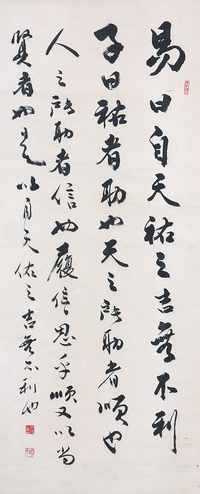 易曰自天祐之吉無不利
子曰祐者助也天之所助者順也
人之所助者信也履信思乎順又以尚
賢者也是以自天佑之吉無不利也